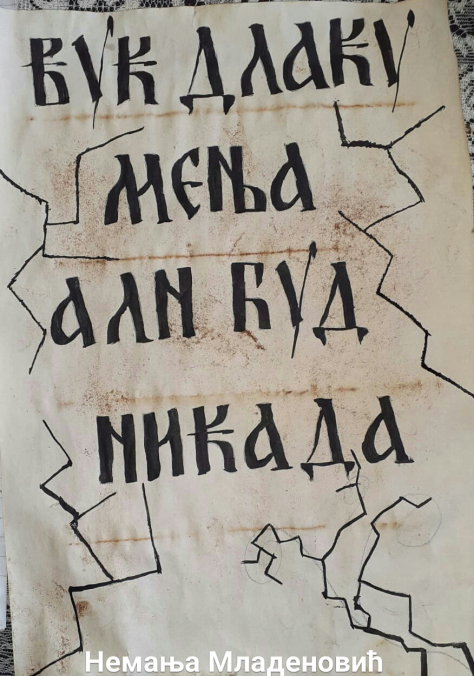 ВУК ДЛАКУ
МЕЊА
АЛИ ЋУД
НИКАДА
Немања Младеновић